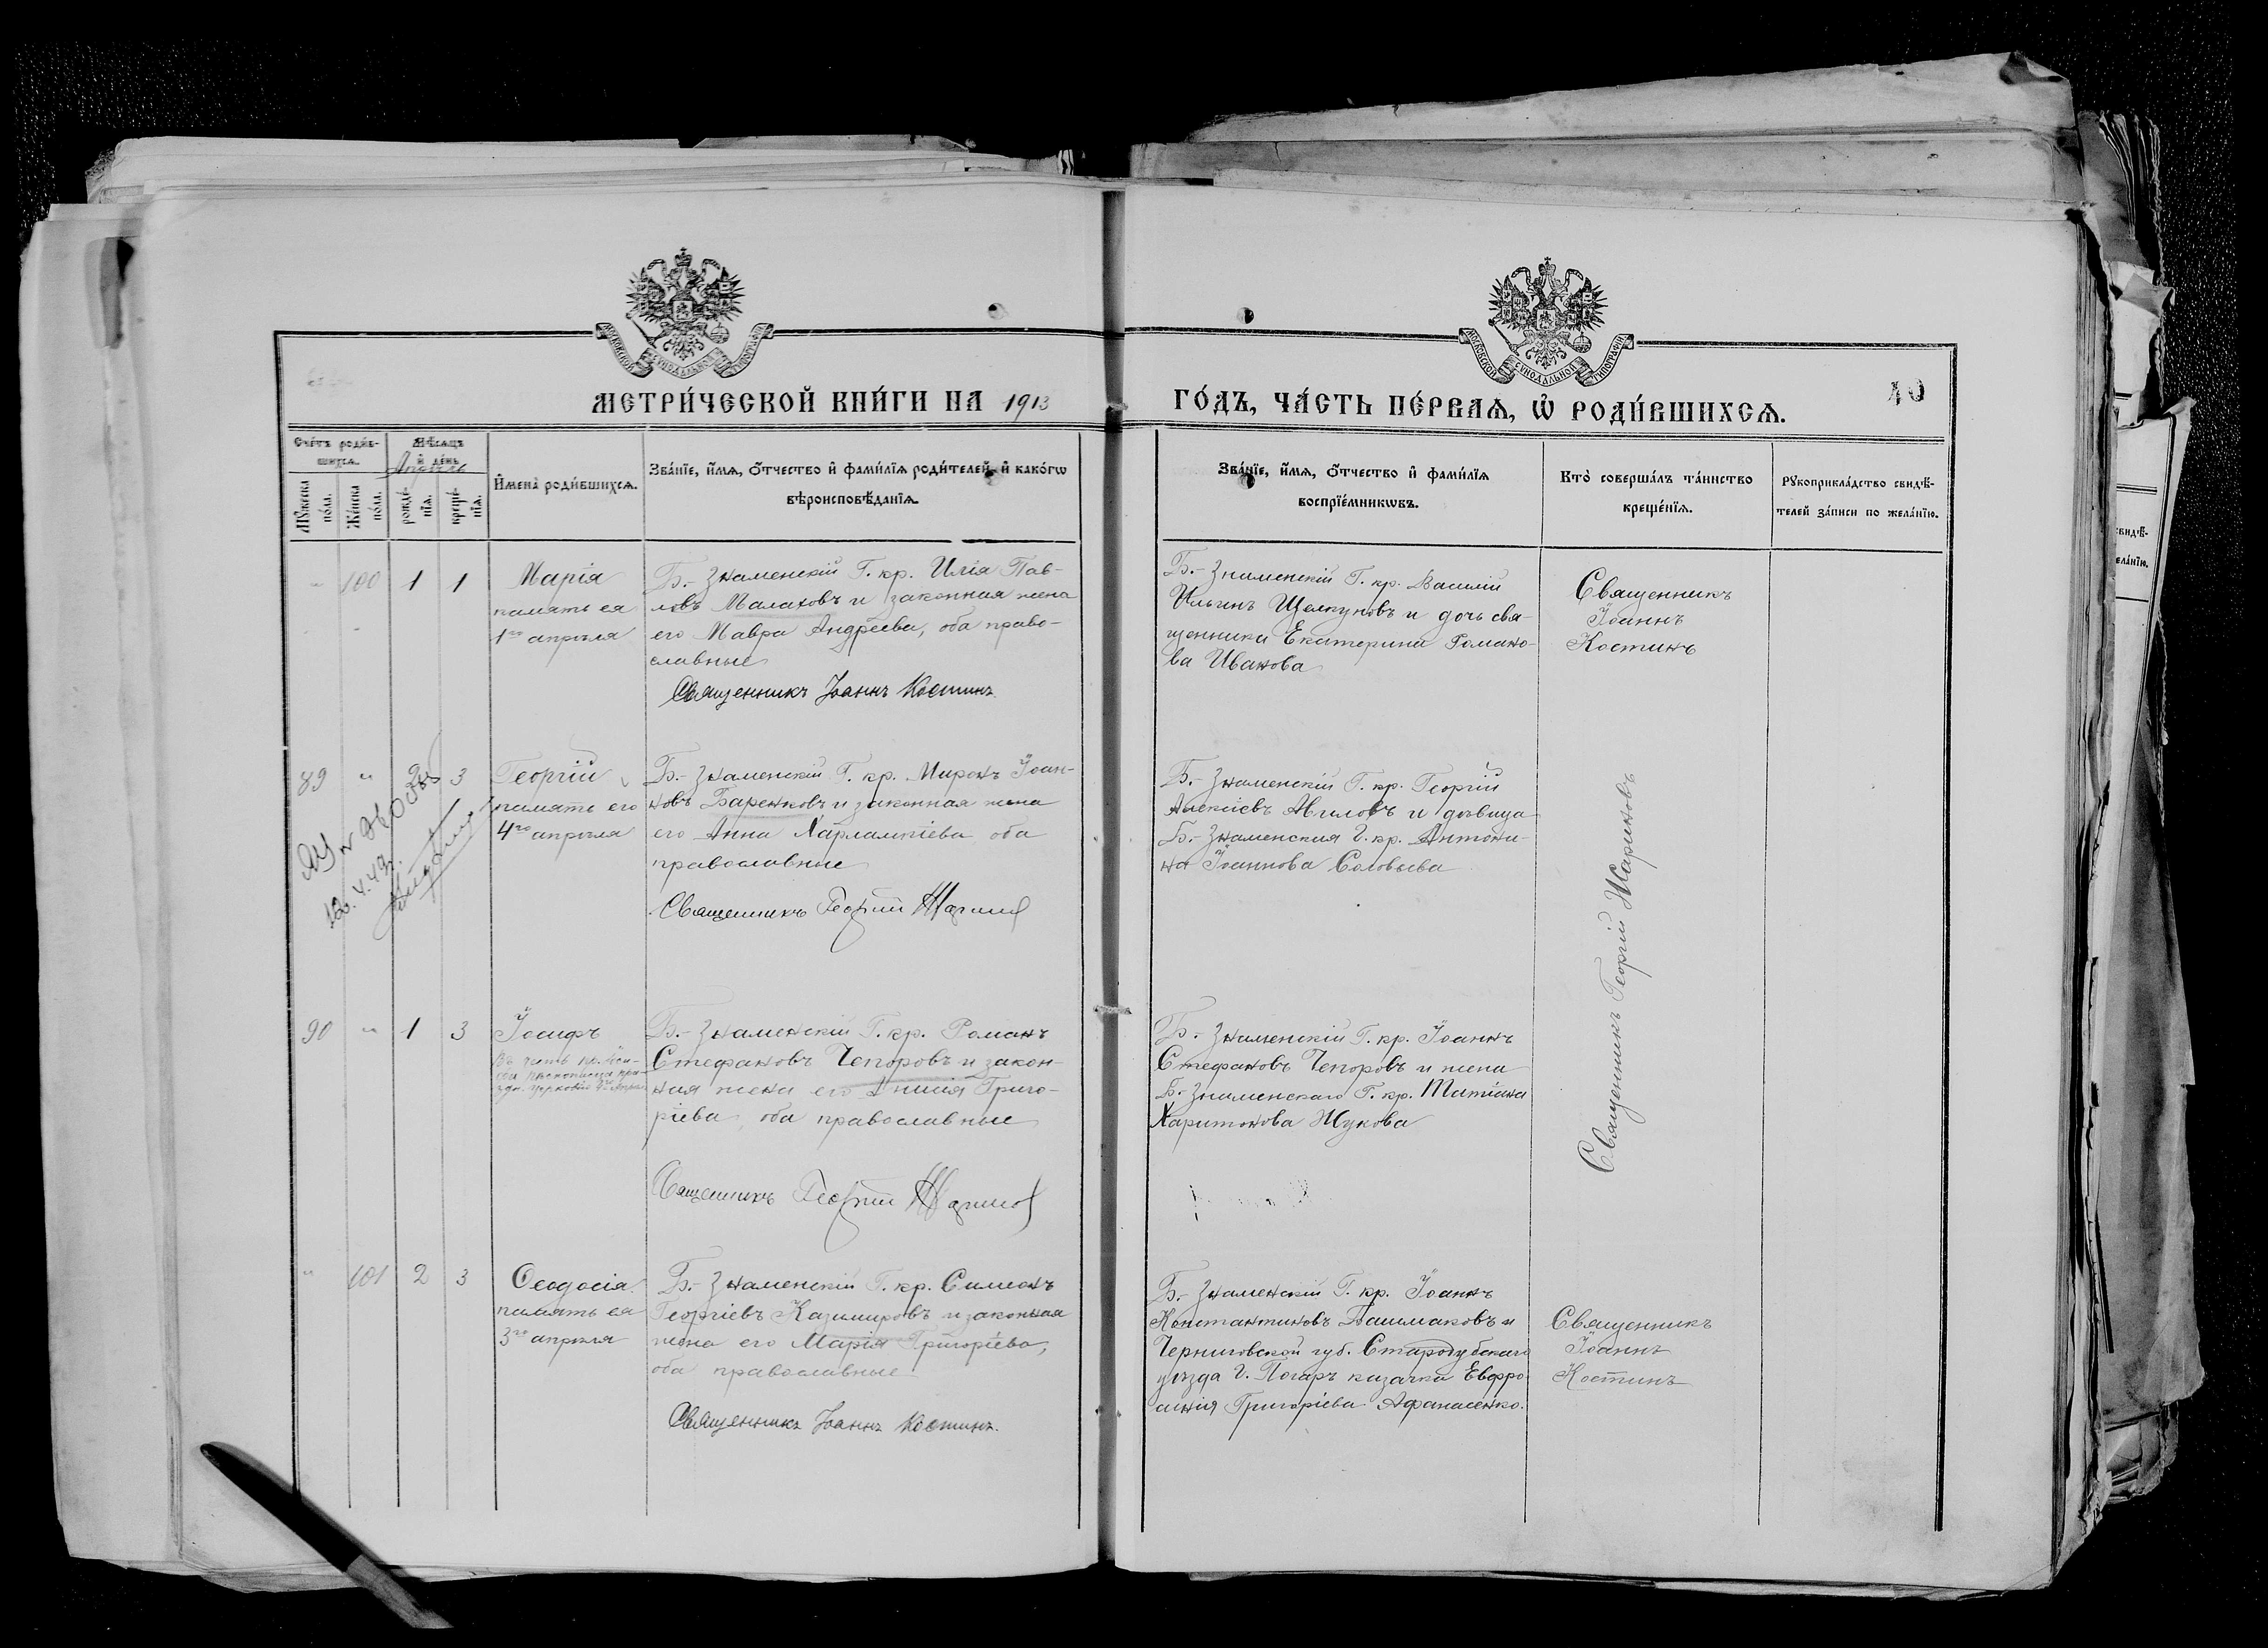 МОСКОВСКОЙ СѴНОДАЛЬНОЙ ТИПОГРАФІИ
МОСКОВСКОЙ СѴНОДАЛЬНОЙ ТИПОГРАФІИ
МЕТРИ́ЧЕСКОЙ КНИ́ГИ НА 1913
ГО́ДЪ, ЧА́СТЬ ПЕ́РВАѦ, Ѡ҆ РОДИ́ВШИХСѦ.
40
Сче́тъ роди́в-
шихсѧ.
Мѣ́сѧцъ
и҆ де́нь
Апрѣль
Мꙋ́жеска
по́ла.
Же́нска
по́ла.
рожде́-
нїѧ.
креще́-
нїѧ.
И҆мена̀ роди́вшихсѧ.
Зва́нїе, и҆́мѧ, ѻ҆́тчество и҆ фами́лїѧ роди́телей, и҆ како́гѡ
вѣроисповѣ́данїѧ.
Зва́нїе, и҆́мѧ, ѻ҆́тчество и҆ фами́лїѧ
воспрїе́мникѡвъ.
Кто̀ соверша́лъ та́инство
креще́нїѧ.
Рꙋкоприкла́дство свидѣ́-
телей за́писи по жела́нїю.
" 100 1 1
Марія
память ея
1го апрѣля
Б.-Знаменскій Г. кр. Илія Пав-
ловъ Малаховъ и законная жена
его Мавра Андреева, оба право-
славные
Священникъ Іоаннъ Костинъ
Б.-Знаменскій Г. кр. Василій
Ильинъ Щелкуновъ и дочь свя-
щенника Екатерина Романо-
ва Иванова
Священникъ
Іоаннъ
Костинъ
89 " 2 3
Георгій
память его
4го апрѣля
Б.-Знаменскій Г. кр. Миронъ Іоан-
новъ Баренковъ и законная жена
его Анна Харлампіева оба
православные
Священникъ Георгій Жариновъ
Б.-Знаменскій Г. кр. Георгій
Алексіевъ и дѣвица
Б.-Знаменская Г. кр. Антони-
на Іоаннова Соловьева
Священникъ Георгій Жариновъ
90 " 1 3
Іосифъ
Б.-Знаменскій Г. кр. Романъ
Стефановъ Чепоровъ и закон-
ная жена его Григо-
ріева, оба православные
Священникъ Георгій Жариновъ
Б.-Знаменскій Г. кр. Іоаннъ
Стефановъ Чепоровъ и жена
Б.-Знаменскаго Г. кр. Татіана
Харитонова Жукова
" 101 2 3
Ѳеодосія
память ея
3го апрѣля
Б.-Знаменскій Г. кр. Симеонъ
Георгіевъ Казимировъ и законная
жена его Марія Григоріева,
оба православные
Священникъ Іоаннъ Костинъ.
Б.-Знаменскій Г. кр. Іоаннъ
Константиновъ Башмаковъ и
Черниговской губ. Стародубскаго
уѣзда Г. Погаръ казачка Евфро
синія Григоріева Афанасенко.
Священникъ
Іоаннъ
Костинъ